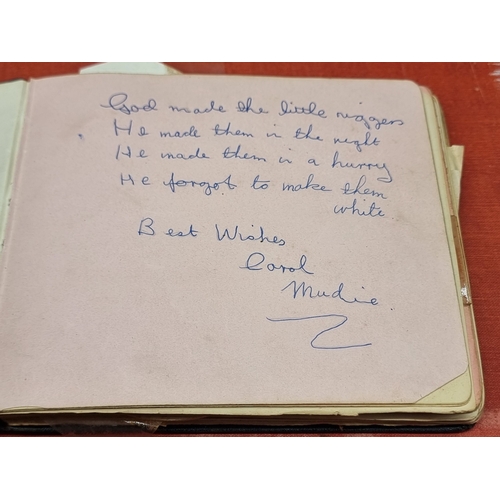 God made the little niggers
He made them in the night
He made them in a hurry
He forgot to make them
white.
Best Wishes
Carol
Mudie.